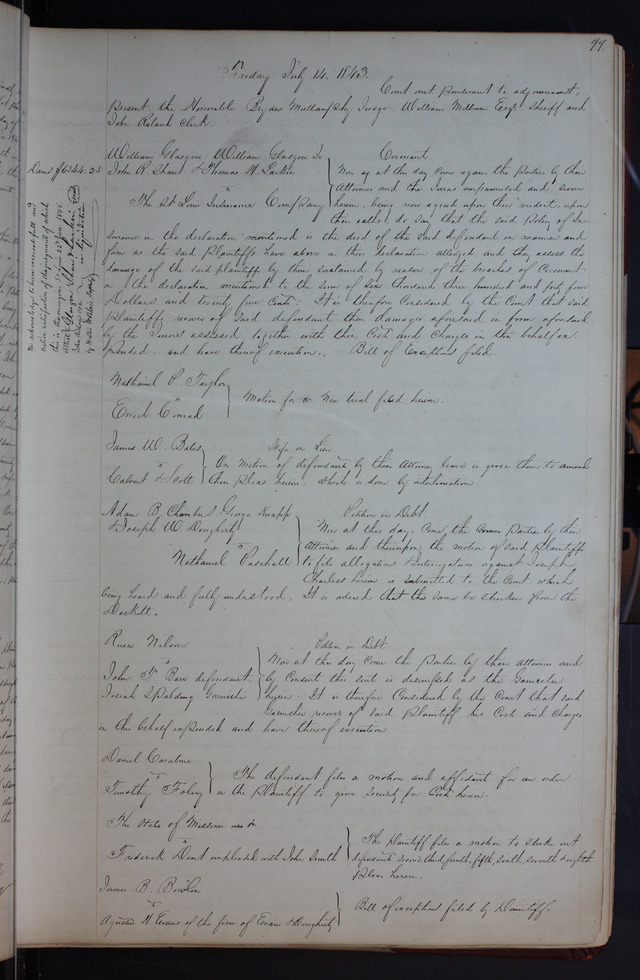 99.
Friday July 14. 1843.
Court met pursuant to adjournment.
present the Honorable Bryan Mullanphy Judge. William Milburn Esqr Sheriff and
John Ruland Clerk.
William Glasgow, William Glasgow Jr
John R. Shaw & Thomas H. Larkin
vs
The St Louis Insurance Company
Covenant
Now at this day come again the parties by their
Attornies and the Jurors empannelled and sworn
herein, being now agreed upon their verdict, upon
their oaths, do say that the said Policy of In
surance in the declaration mentioned is the deed of the said defendant in manner and
form as the said plaintiffs have above in their declaration alledged and they assess the
damage of the said plaintiffs by them sustained by reason of the breaches of Covenant
in the declaration mentioned to the sum of Six thousand three hundred and forty four
Dollars and twenty five Cents: It is therefore Considered by the Court that said
Plaintiffs recover of said defendant their damages aforesaid in form aforesaid
by the Jurors assessed, together with their Cost and Charges in this behalf ex
pended, and have thereof execution. Bill of Exceptions filed.
Dams $6344.25
We acknowledge to have received full and
entire satisfaction of the payment of which
this is the
Nathaniel P. Taylor
vs
Enoch Conrad
Motion for a New trial filed herein.
James W. Bates
vs
Calvert & Scott
On Motion of defendants by their Attorney, leave is given them to amend
their pleas herein. which is done by interlineation.
Adam B. Chambers George Knapp
& Joseph W. Dougherty
vs
Nathaniel Paschall
Petition in Debt
Now at this day, Come the Parties by their
Attornies and thereupon the motion of said Plaintiffs
to file allegations & interrogatories against Joseph
Charless herein is submitted to the Court which
being heard and fully understood. It is ordered that the same be stricken from the
Dockett.
Nelson
vs
John F. defendant.
Josiah Spalding Garnishee
Petition in Debt.
Now at this day Come the Parties by their Attornies and
by Consent this suit is dismissed as to the Garnishee
herein: It is therefore Considered by the Court that said
Garnishee recover of said Plaintiff his Cost and Charges
in this behalf expended and have thereof execution
Daniel
vs
Timothy Foley
The defendant files a motion and affidavit for an order
on the Plaintiff to give Security for Costs herein.
The State of Missouri use &c
vs
Frederick Dent impleaded with John Smith
The Plaintiff files a motion to strike out
defendants second, third, fourth, fifth, sixth, seventh & eighth
pleas herein.
James B. Bowlin
vs
Agustus H. Evans of the firm of Evans & Dougherty
Bill of exceptions filed by Plaintiff.